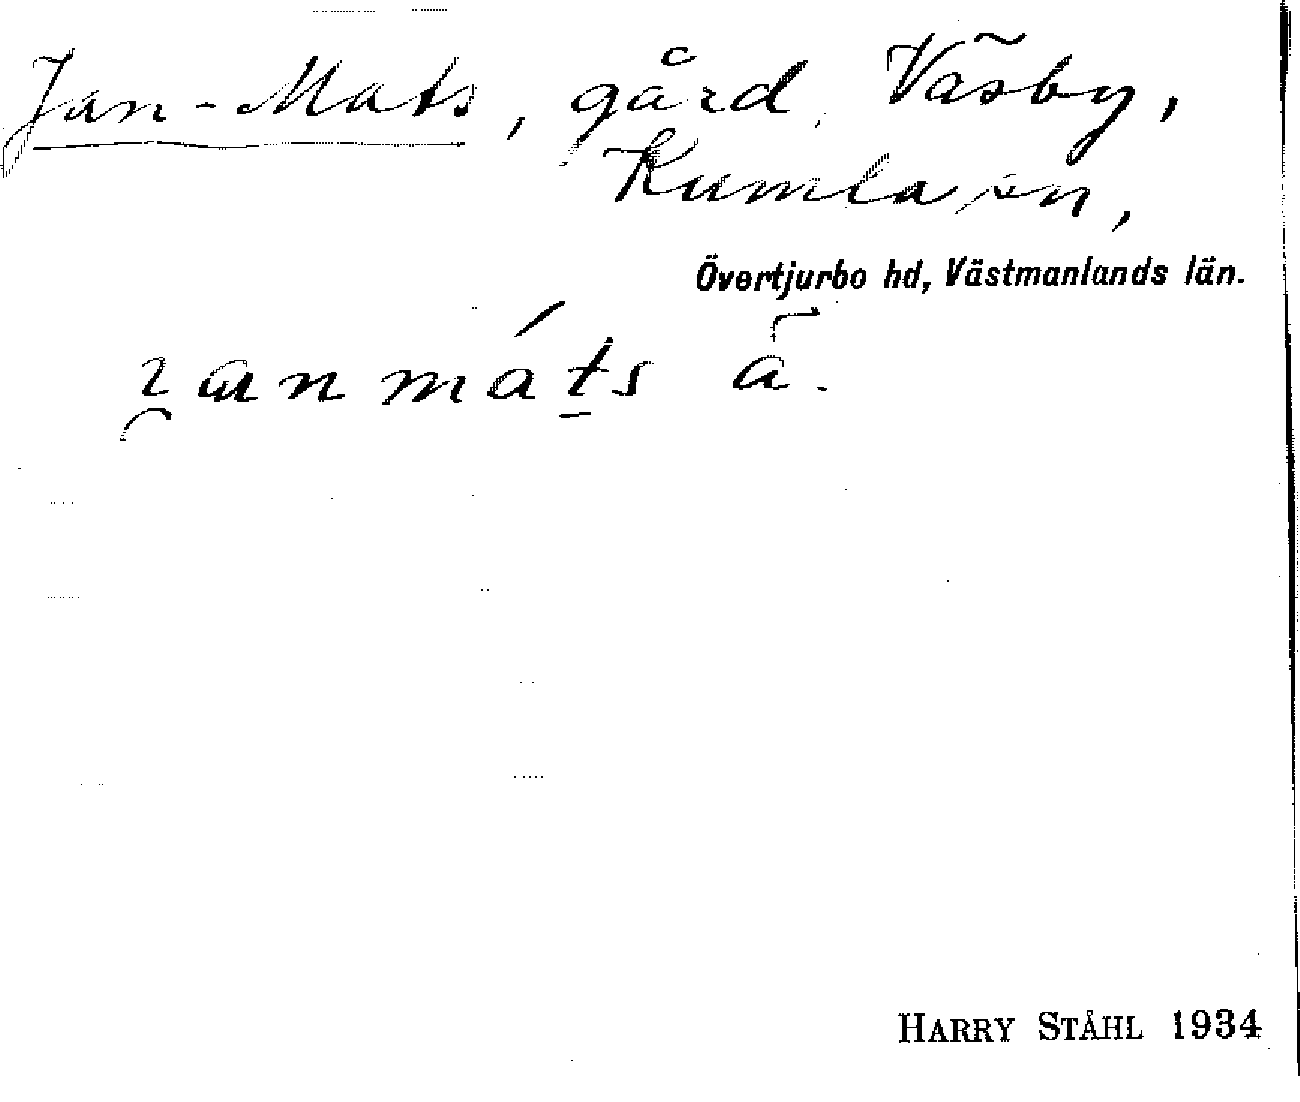 Jan-Mats, gård, Väsby,
Kumla sn,
Övertjurbo hd, Västmanlands län.
HARRY STÅHL 1934